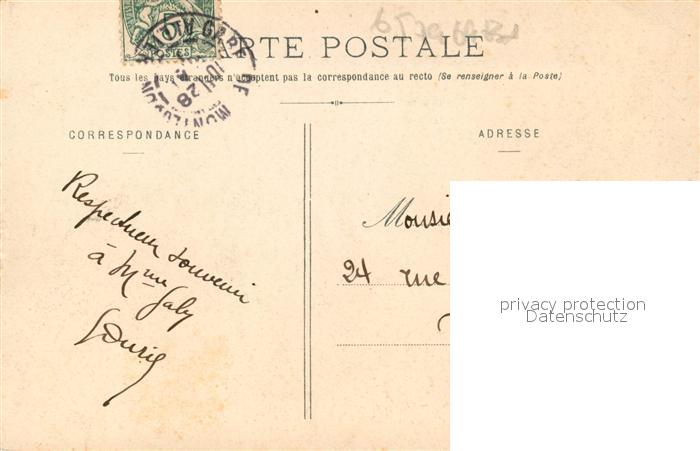 5c
POSTES
CARTE POSTALE
Tous les pays étrangers n'acceptent pas la correspondance au recto (Se renseigner à la Poste)
MONTLUÇON GARE
28
CORRESPONDANCE
ADRESSE
Respectueux souvenir
à Mme Gaby
Monsie
24 rue
privacy protection
Datenschutz